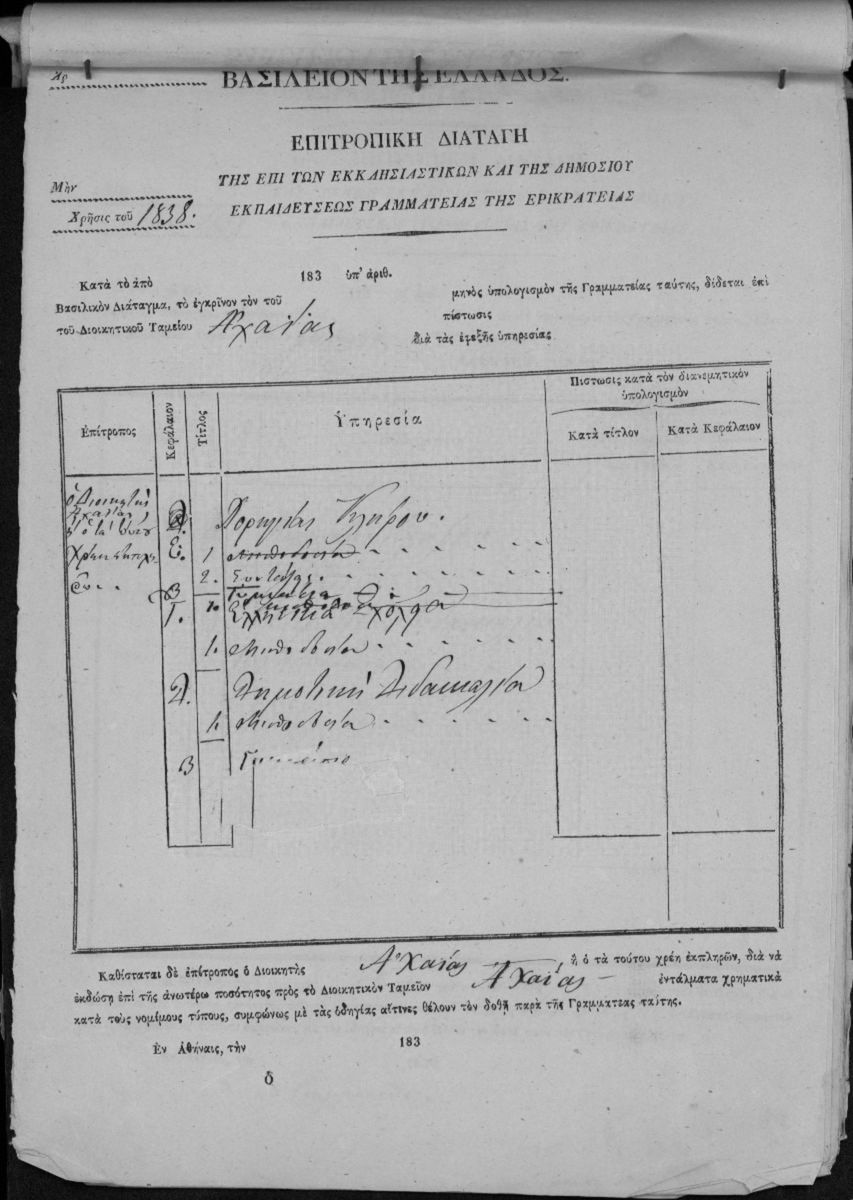 ΒΑΣΙΛΕΙΟΝ ΤΗΣ ΕΛΛΑΔΟΣ.
ΕΠΙΤΡΟΠΙΚΗ ΔΙΑΤΑΓΗ
ΤΗΣ ΕΠΙ ΤΩΝ ΕΚΚΛΗΣΙΑΣΤΙΚΩΝ ΚΑΙ ΤΗΣ ΔΗΜΟΣΙΟΥ
ΕΚΠΑΙΔΕΥΣΕΩΣ ΓΡΑΜΜΑΤΕΙΑΣ ΤΗΣ ΕΡΙΚΡΑΤΕΙΑΣ
Μὴν
Χρῆσις τοῦ 1838.
Κατὰ τὸ ἀπὸ 183 ὑπ' ἀριθ.
Βασιλικὸν Διάταγμα, τὸ ἐγκρῖνον τὸν τοῦ μηνὸς ὑπολογισμὸν τῆς Γραμματείας ταύτης, δίδεται ἐπὶ πίστωσις
τοῦ Διοικητικοῦ Ταμείου Ἀχαΐας διὰ τὰς ἐφεξῆς ὑπηρεσίας
Ἐπίτροπος
Κεφάλαιον
Τίτλος
Ὑπηρεσία
Πίστωσις κατὰ τὸν διανεμητικὸν ὑπολογισμὸν
Κατὰ τίτλον
Κατὰ Κεφάλαιον
ὁ Διοικητὴς
Ἀχαΐας
Χορηγίας Κλήρου.
1 Μισθοδοσία
2.
Γ. Ἑλληνικὰ Σχολεῖα
1. Μισθοδοσία
Δ. Δημοτικὴ Διδασκαλία
1. Μισθοδοσία
Β
Καθίσταται δὲ ἐπίτροπος ὁ Διοικητὴς Ἀχαΐας ἢ ὁ τὰ τούτου χρέη ἐκπληρῶν, διὰ νὰ
ἐκδώσῃ ἐπὶ τῆς ἀνωτέρω ποσότητος πρὸς τὸ Διοικητικὸν Ταμεῖον Ἀχαΐας ἐντάλματα χρηματικὰ
κατὰ τοὺς νομίμους τύπους, συμφώνως μὲ τὰς ὁδηγίας αἵτινες θέλουν τὸν δοθῆ παρὰ τῆς Γραμματεας ταύτης.
Ἐν Ἀθήναις, τὴν 183
δ